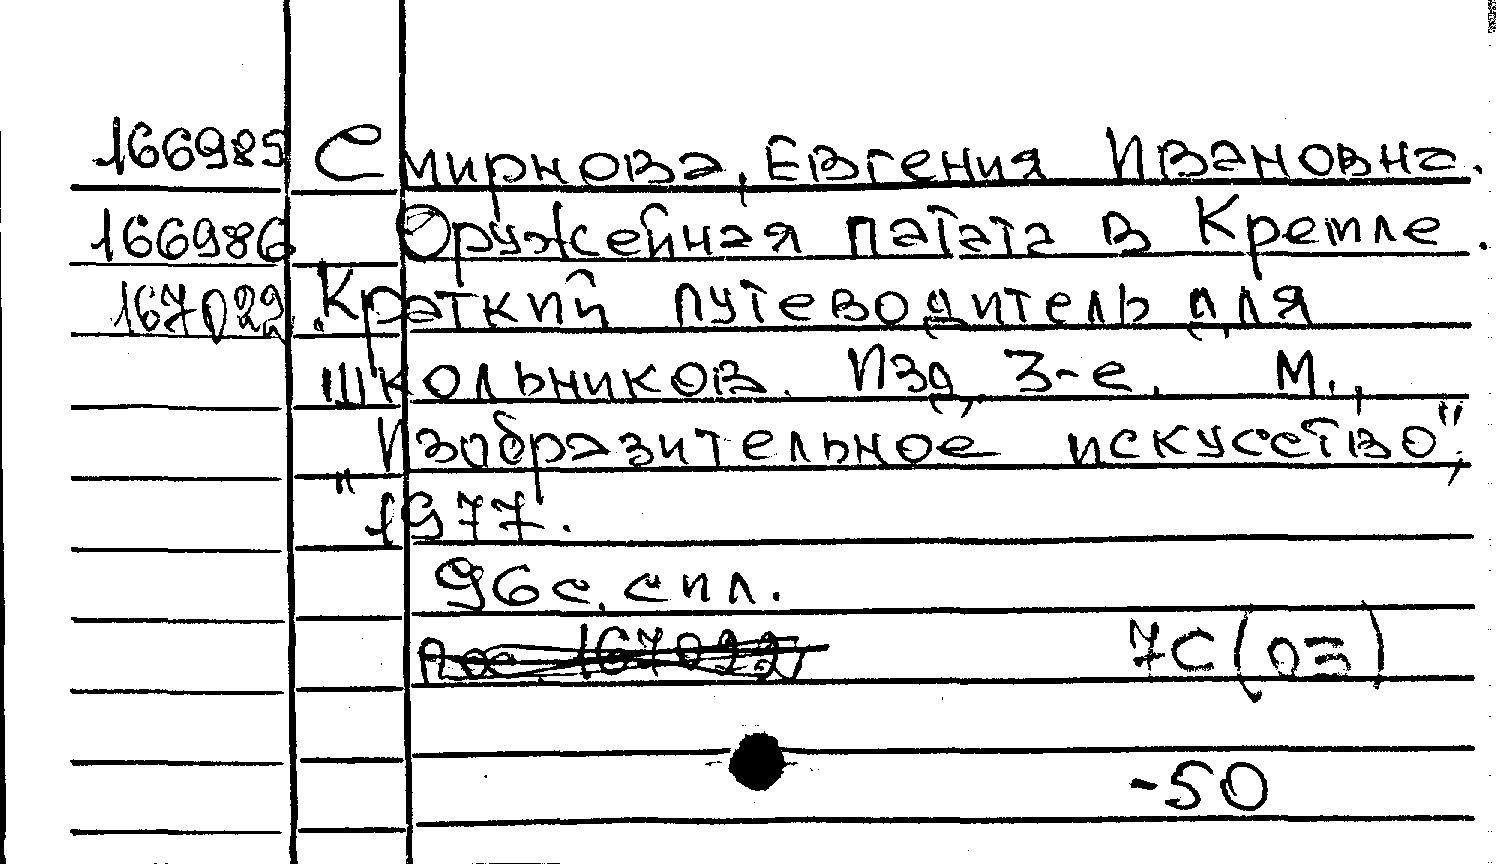 166985 Смирнова, Евгения Ивановна.
166986 Оружейная палата в Кремле.
167022 Краткий путеводитель для
школьников. Изд. 3-е. М.,
"Изобразительное искусство",
1977.
96 с. с ил.
7С(03)
-50